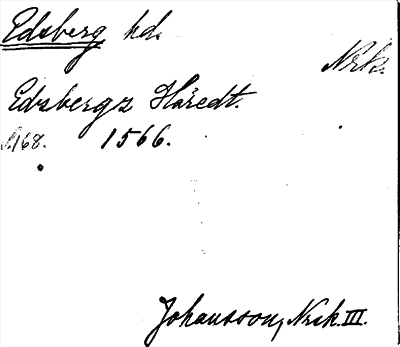 Edsberg hd.
Nrk.
Edsbergz Häredt.
s. 168. 1566.
Johansson, Nrsk. III.